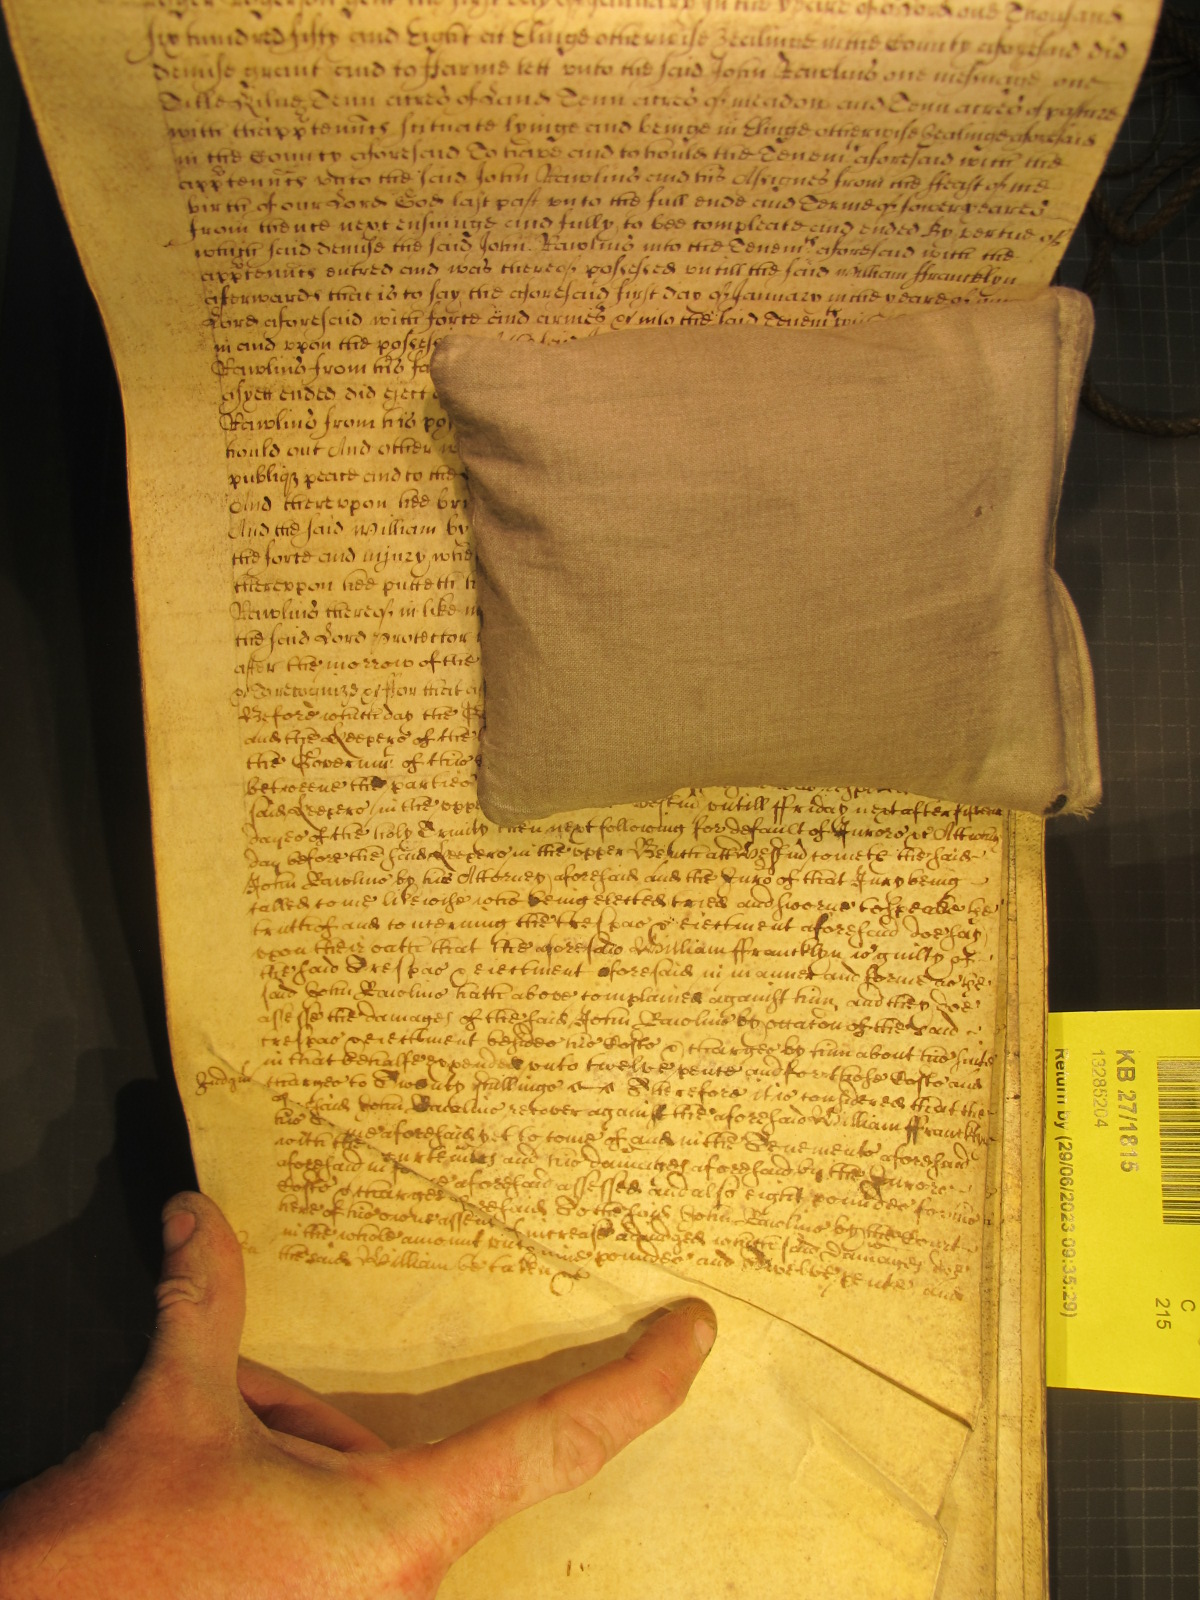 in the yeare of o Lord one Thousand
six hundred fifty and Eight at Elinge otherwise Zealinge in the County aforesaid did
demise grant and to ffarme lett vnto the said John Rawlins one mesuage one
acres of Land Tenn acres of meadow and Tenn acres of pasture
with thapptennts scituate lyinge and beinge in Elinge otherwise Zealinge aforesaid
in the County aforesaid To have and to hould the Tenemts aforesaid with the
apptennts vnto the said John Rawlins and his Assignes from the ffeast of the
birth of our Lord God last past vnto the full ende and Terme of fower yeares
from thence next ensuinge and fully to bee compleate and ended By vertue of
which said demise the said John Rawlins into the Tenemts aforesaid with the
apptennts entred and was thereof possessed vntill the said William ffrancklyn
afterwards that is to say the aforesaid first day of January in the yeare of our
Lord aforesaid with force and armes &c into the said Tenemts
in and vpon the possess
Rawlins from his fa
as yett ended did eject
Rawlins from his po
hould out And other
publiq peace and to the
And therevpon hee bri
And the said William by
the force and injury whe
therevpon hee putteth
Rawlins thereof in like
the said Lord Protector
after the morrow of the
&c To recognize &c ffor that
Before which day the
and the Keepers of the
the Governmt of
betweene the parties
said Keepers in the vpp westm vntill ffriday next after
dayes of the holy Trinity then next following for default of Jurors &c Att which
day before the said Keepers in the vpper Bench att Westm come the said
John Rawlins by his Attorney aforesaid and the Jurors of that Jury being
called come likewise who being elected tried and sworne to speake the
truth of and concerning the trespas & eiectment aforesaid doe say
vpon their oath that the aforesaid William ffrancklyn is guilty of
the said Trespas & eiectment aforesaid in manner and forme as the
said John Rawlins hath above complained against him and they doe
assesse the damages of the said John Rawlins by occasion of the said
trespas & eiectment besides his Costs & charges by him about his suite
in that behalfe expended vnto twelve pence and for those Costs and
charges to Twenty shillings Therefore it is considered that the
said John Rawlins recover against the aforesaid William ffrancklyn
his aforesaid yet to come of and in the Tenements aforesaid
with the and his damages aforesaid by the Jurors
aforesaid in aforesaid assessed and also eight poundes for his
Costs & charges aforesaid to the said John Rawlins by the Court
here of his owne assent increase adiudged which said damages doe
in the whole amount vnto nine poundes and Twelve pence and
the said William be taken &c
KB 27/1815
13285204
Return by (29/06/2023 09:35:29)
C
215